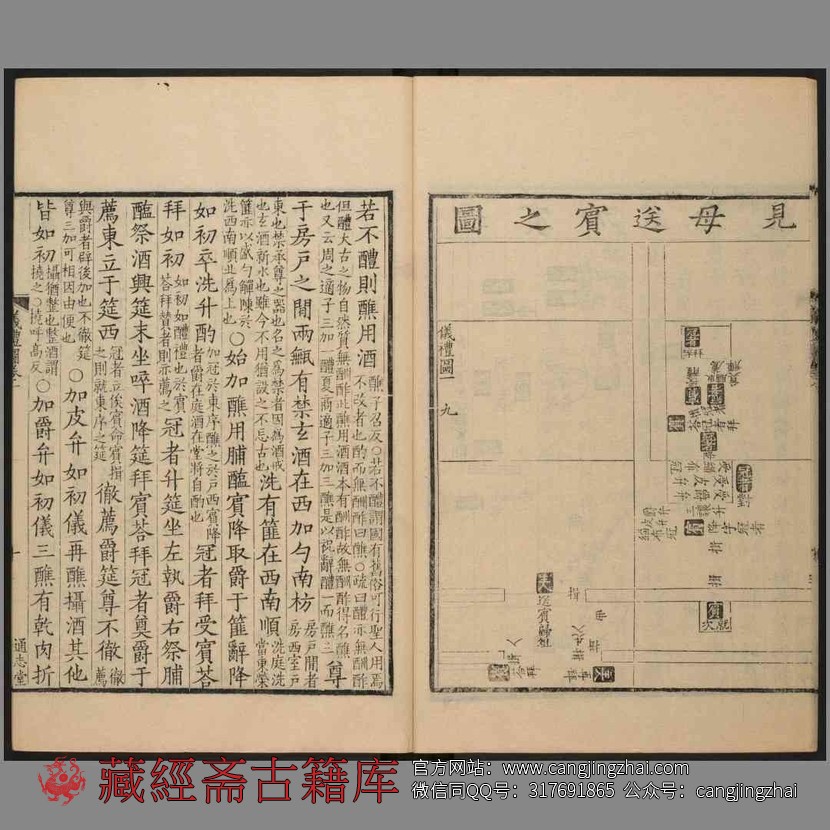 見母送賓之圖
儀禮圖一
九
賓
次
主
送賓歸
主人
若不醴則醮用酒
醮子召反○若不醴謂國有舊俗可行聖人用焉
不改者也酌而無酬酢曰醮○疏曰醴亦無酬酢
但醴大古之物自然質無酬酢此醮用酒酒本有酬酢故無酬酢得名醮
也又云周之適子三加一醴夏商適子三加三醮是以祝辭醴一而醮三
尊
于房戶之閒兩甒有禁玄酒在西加勺南枋
房戶閒者
房西室戶
東也禁承尊之器也名之為禁者因為酒戒
也玄酒新水也雖今不用猶設之不忘古也
洗有篚在西南順
洗庭洗
當東榮
篚亦以盛勺觶陳於
洗西南順北為上也
○始加醮用脯醢賓降取爵于篚辭降
如初卒洗升酌
加冠於東序醮之於戶西賓降
者爵在庭酒在堂將自酌也
冠者拜受賓荅
拜如初
如初如醴禮也於賓
荅拜贊者則亦薦之
冠者升筵坐左執爵右祭脯
醢祭酒興筵末坐啐酒降筵拜賓荅拜冠者奠爵于
薦東立于筵西
冠者立俟賓命賓揖
之則就東序之筵
徹薦爵筵尊不徹
徹薦
與爵者辟後加也不徹筵
尊三加可相因由便也
○加皮弁如初儀再醮攝酒其他
皆如初
攝猶整也整酒謂
撓之○撓呼高反
○加爵弁如初儀三醮有乾肉折
十
通志堂
藏經斋古籍库
官方网站：www.cangjingzhai.com
微信同QQ号：317691865 公众号：cangjingzhai